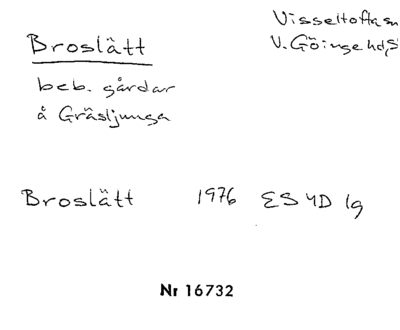 Broslätt
Visseltofta sn
V. Göinge hd, S
beb. gårdar
å Gräsljunga
Broslätt 1976 ES 4D 1g
Nr 16732